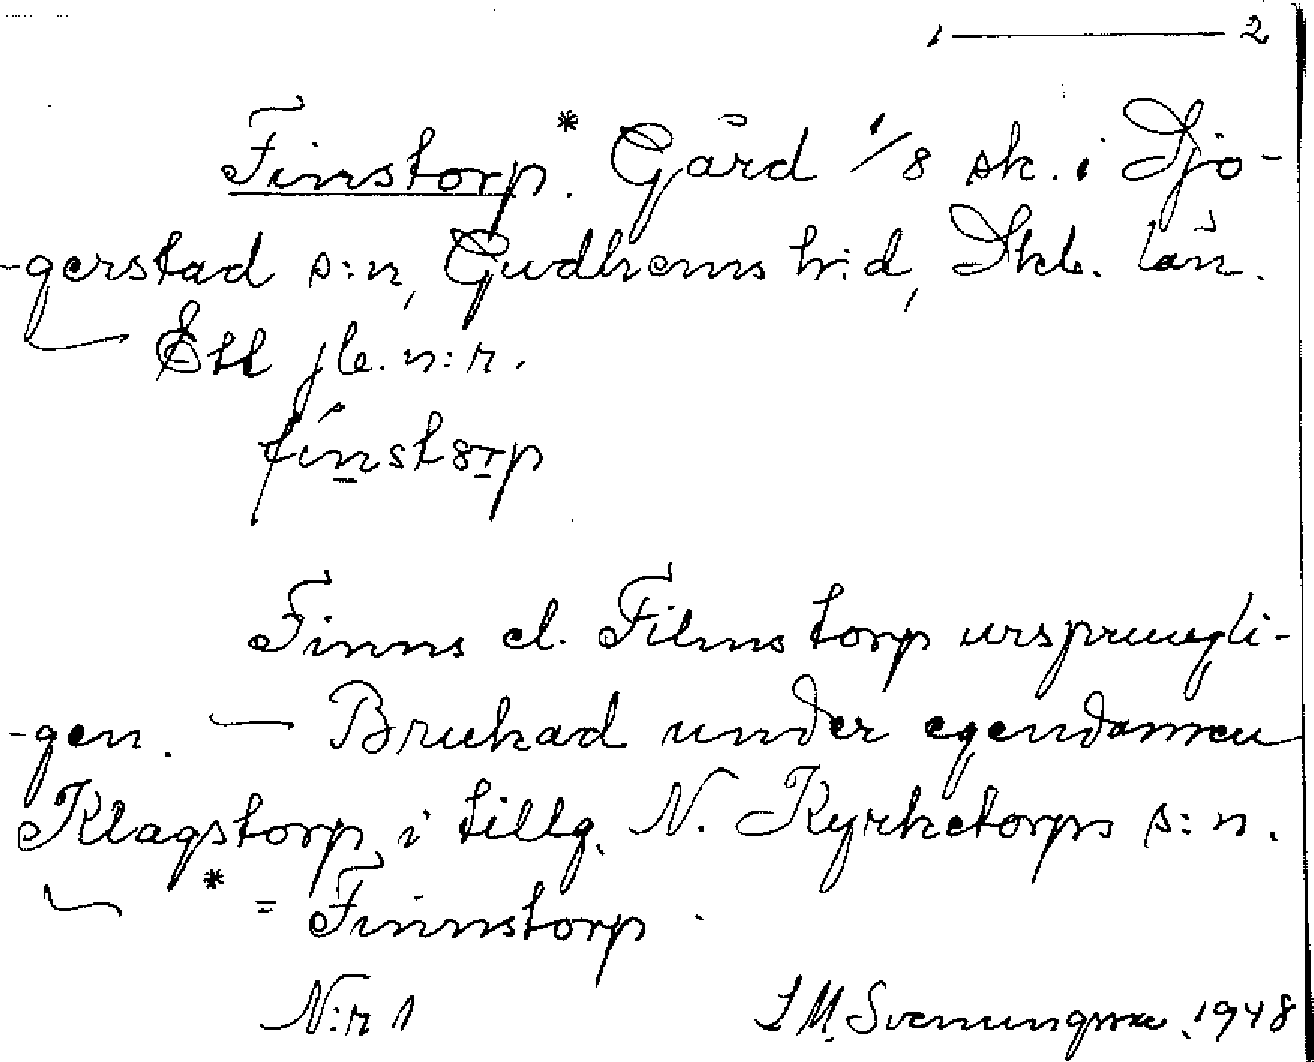 1 — 2
Finstorp.* Gård 1/8 sk. i Sjo-
-gerstad s:n, Gudhems h:d, Skb. län.
— Ett jb. n:r.
Finns el. Films torp ursprungli-
-gen. — Brukad under egendomen
Klagstorp i tillg. N. Kyrketorps s:n.
— * = Finnstorp.
N:r 1 S.M. Svenungsson 1948